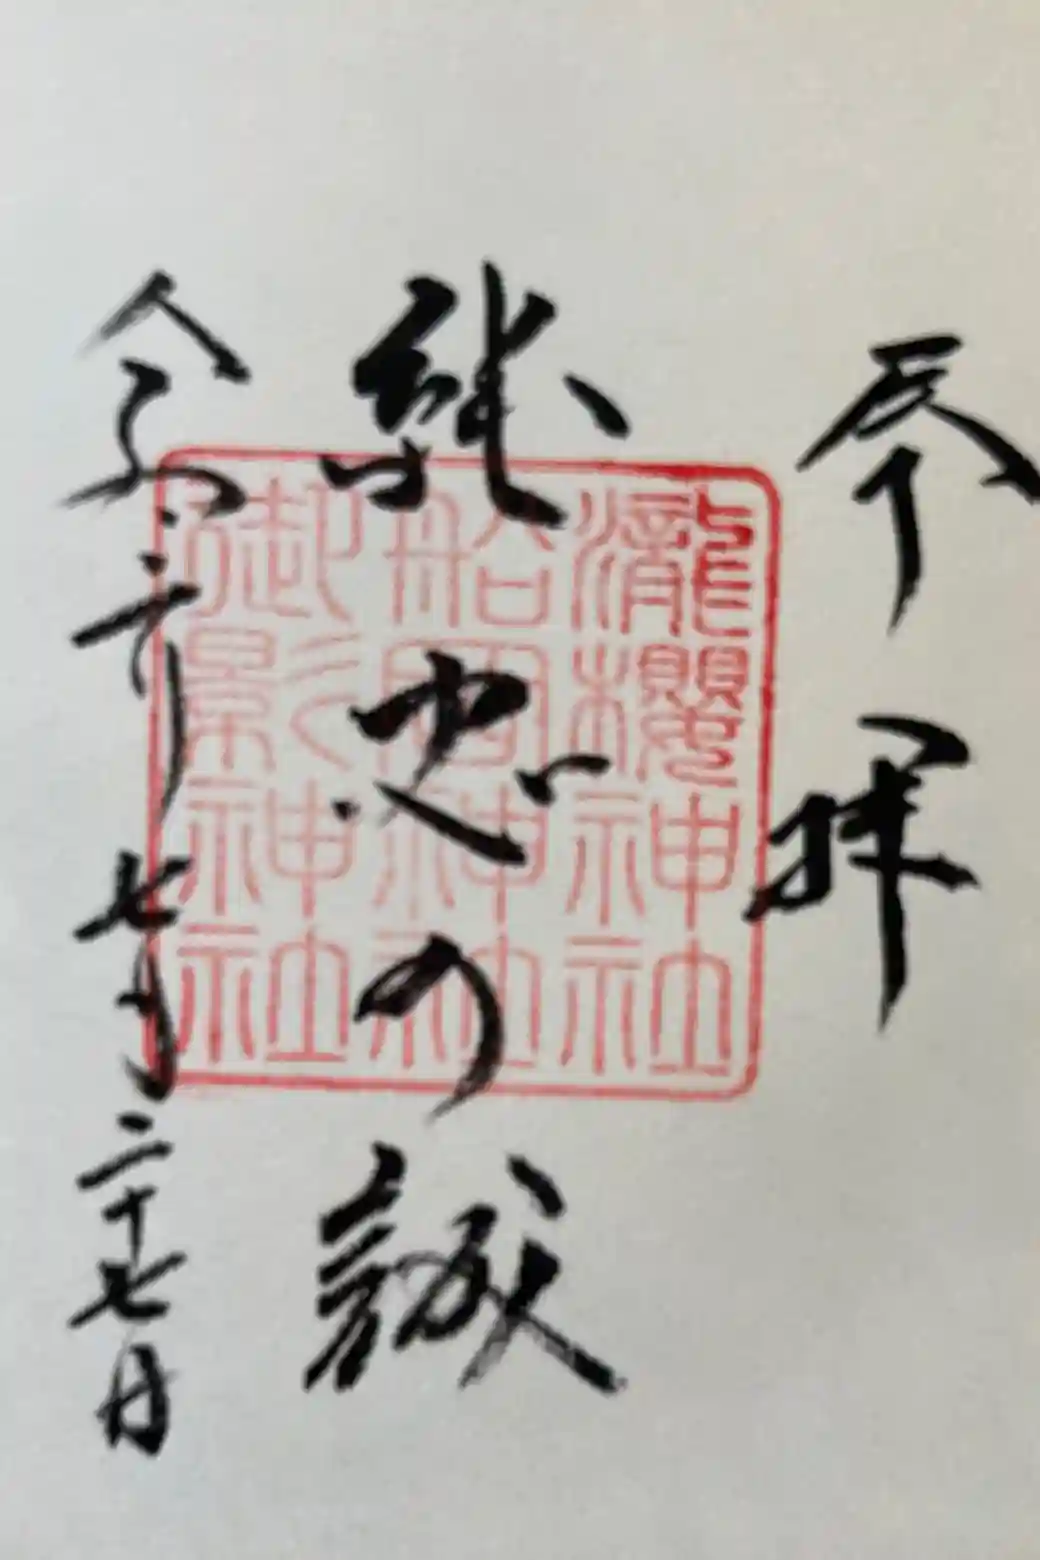 奉拝
忠の誠
令和 年七月二十七日
瀧櫻神社
船岡神社
御影神社